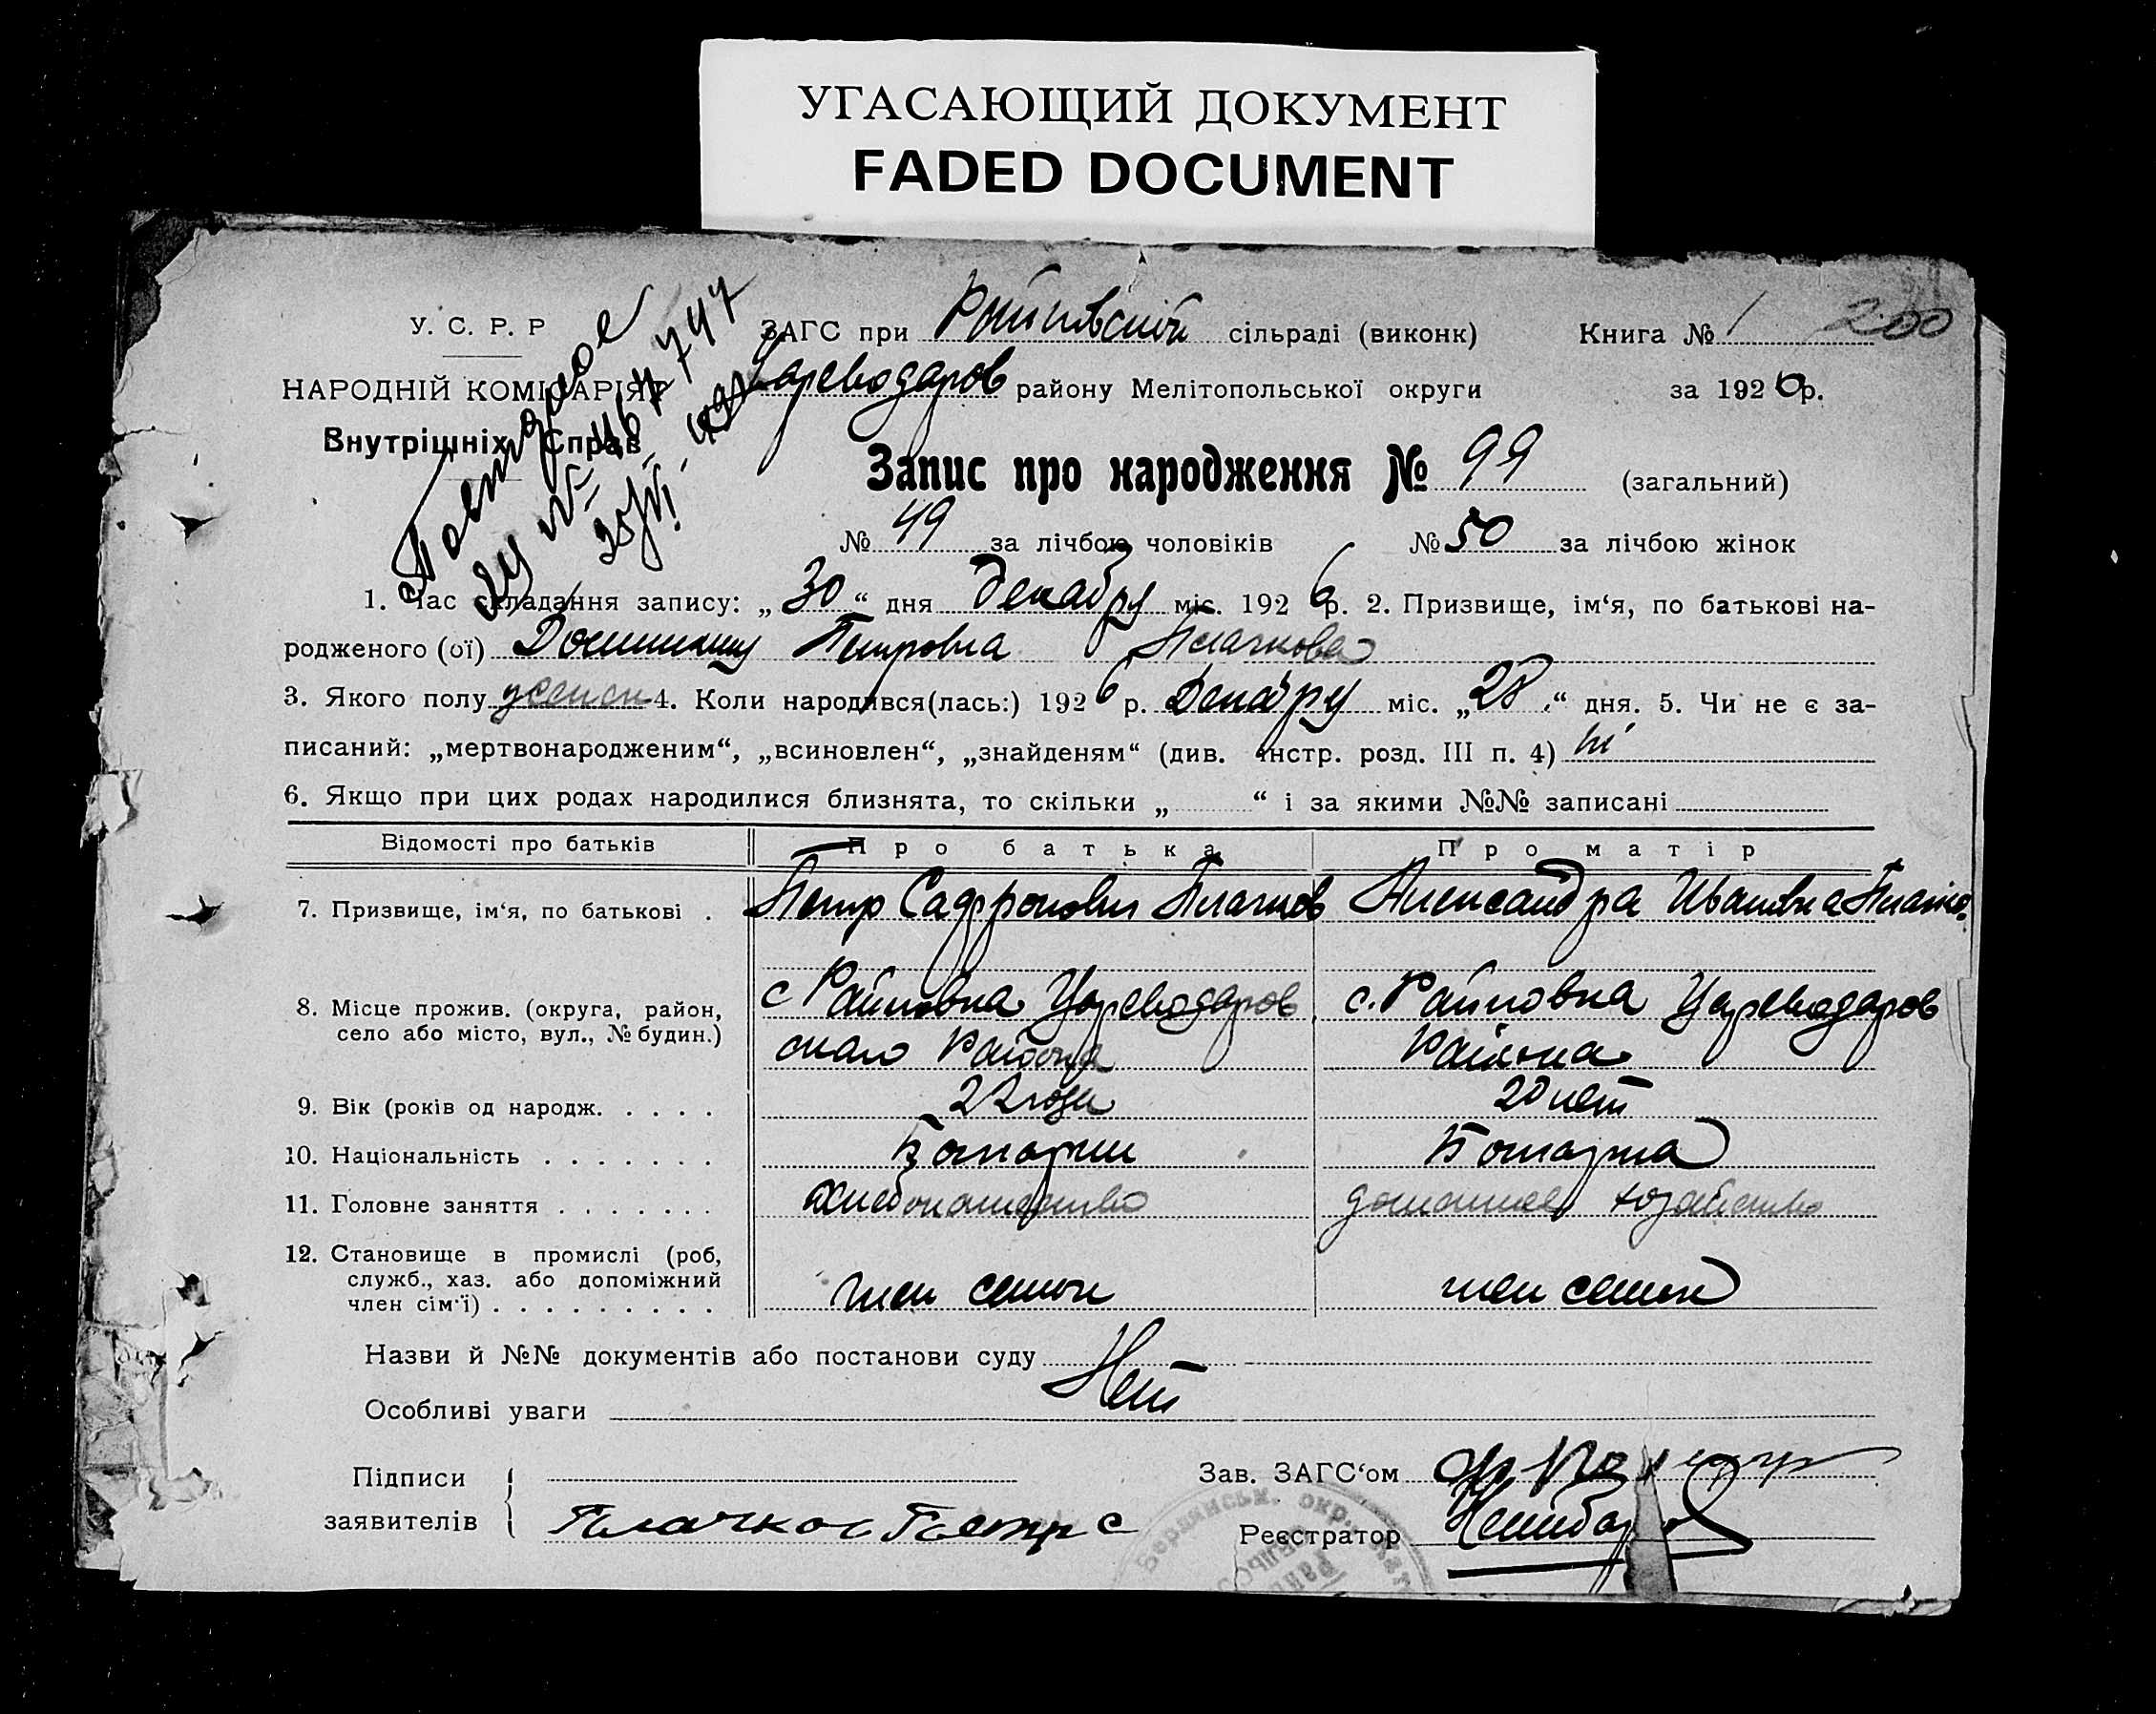 УГАСАЮЩИЙ ДОКУМЕНТ
FADED DOCUMENT
У. С. Р. Р
НАРОДНІЙ КОМІСАРІЯТ
Внутрішніх Справ
Повторное
ЗАГС при сільраді (виконк)
Книга № 1 200
Цареводаров району Мелітопольської округи
за 1926 р.
Запис про народження № 99 (загальний)
№ 49 за лічбою чоловіків № 50 за лічбою жінок
1. Час складання запису: „30“ дня декабру міс. 1926 р. 2. Призвище, ім‘я, по батькові на-
родженого (ої) Петровна Плачкова
3. Якого полу женск 4. Коли народився(лась:) 1926 р. Декабру міс. „28“ дня. 5. Чи не є за-
писаний: „мертвонародженим“, „всиновлен“, „знайденям“ (див. інстр. розд. III п. 4) ні
6. Якщо при цих родах народилися близнята, то скільки „ “ і за якими №№ записані
Відомості про батьків Про батька Про матір
7. Призвище, ім‘я, по батькові . Петр Сафронович Плачков Александра Ивановна Плачко.
8. Місце прожив. (округа, район, село або місто, вул., № будин.) с Райновка Цареводаров с. Райновка Цареводаров
скаго Района Района
9. Вік (років од народж. . . . . 22 года 20 лет
10. Національність . . . . . . . Болгарин Болгарка
11. Головне заняття . . . . . . . хлебопашество домашнее хозяйство
12. Становище в промислі (роб,
служб., хаз. або допоміжний
член сім‘ї) . . . . . . . . . член семьи член семьи
Назви й №№ документів або постанови суду Нет
Особливі уваги
Підписи
заявителів Плачков Петр с
Зав. ЗАГС‘ом
Реєстратор
Бердянськ. окр.